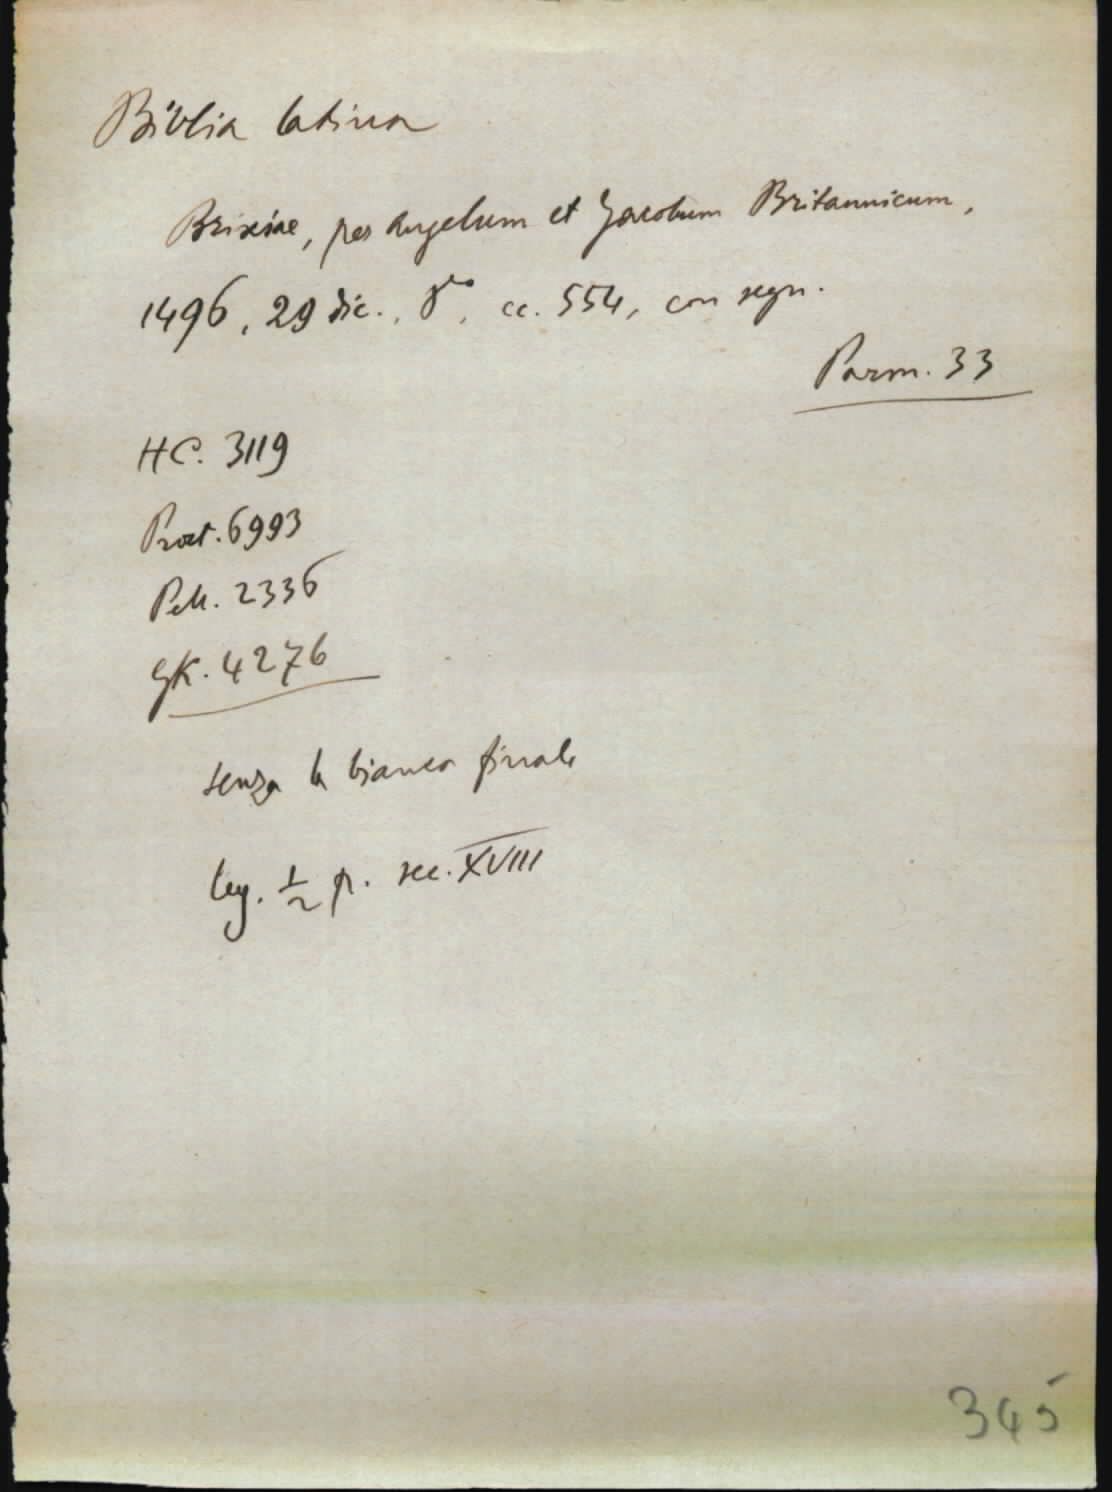 Biblia latina
Brixiae, per Angelum et Jacobum Britannicum,
1496, 29 dic., 8º, cc. 554, con segn.
Parm. 33
HC. 3119
Proct. 6993
Pell. 2336
GK. 4276
senza la bianca finale
leg. ½ p. sec. XVIII
345